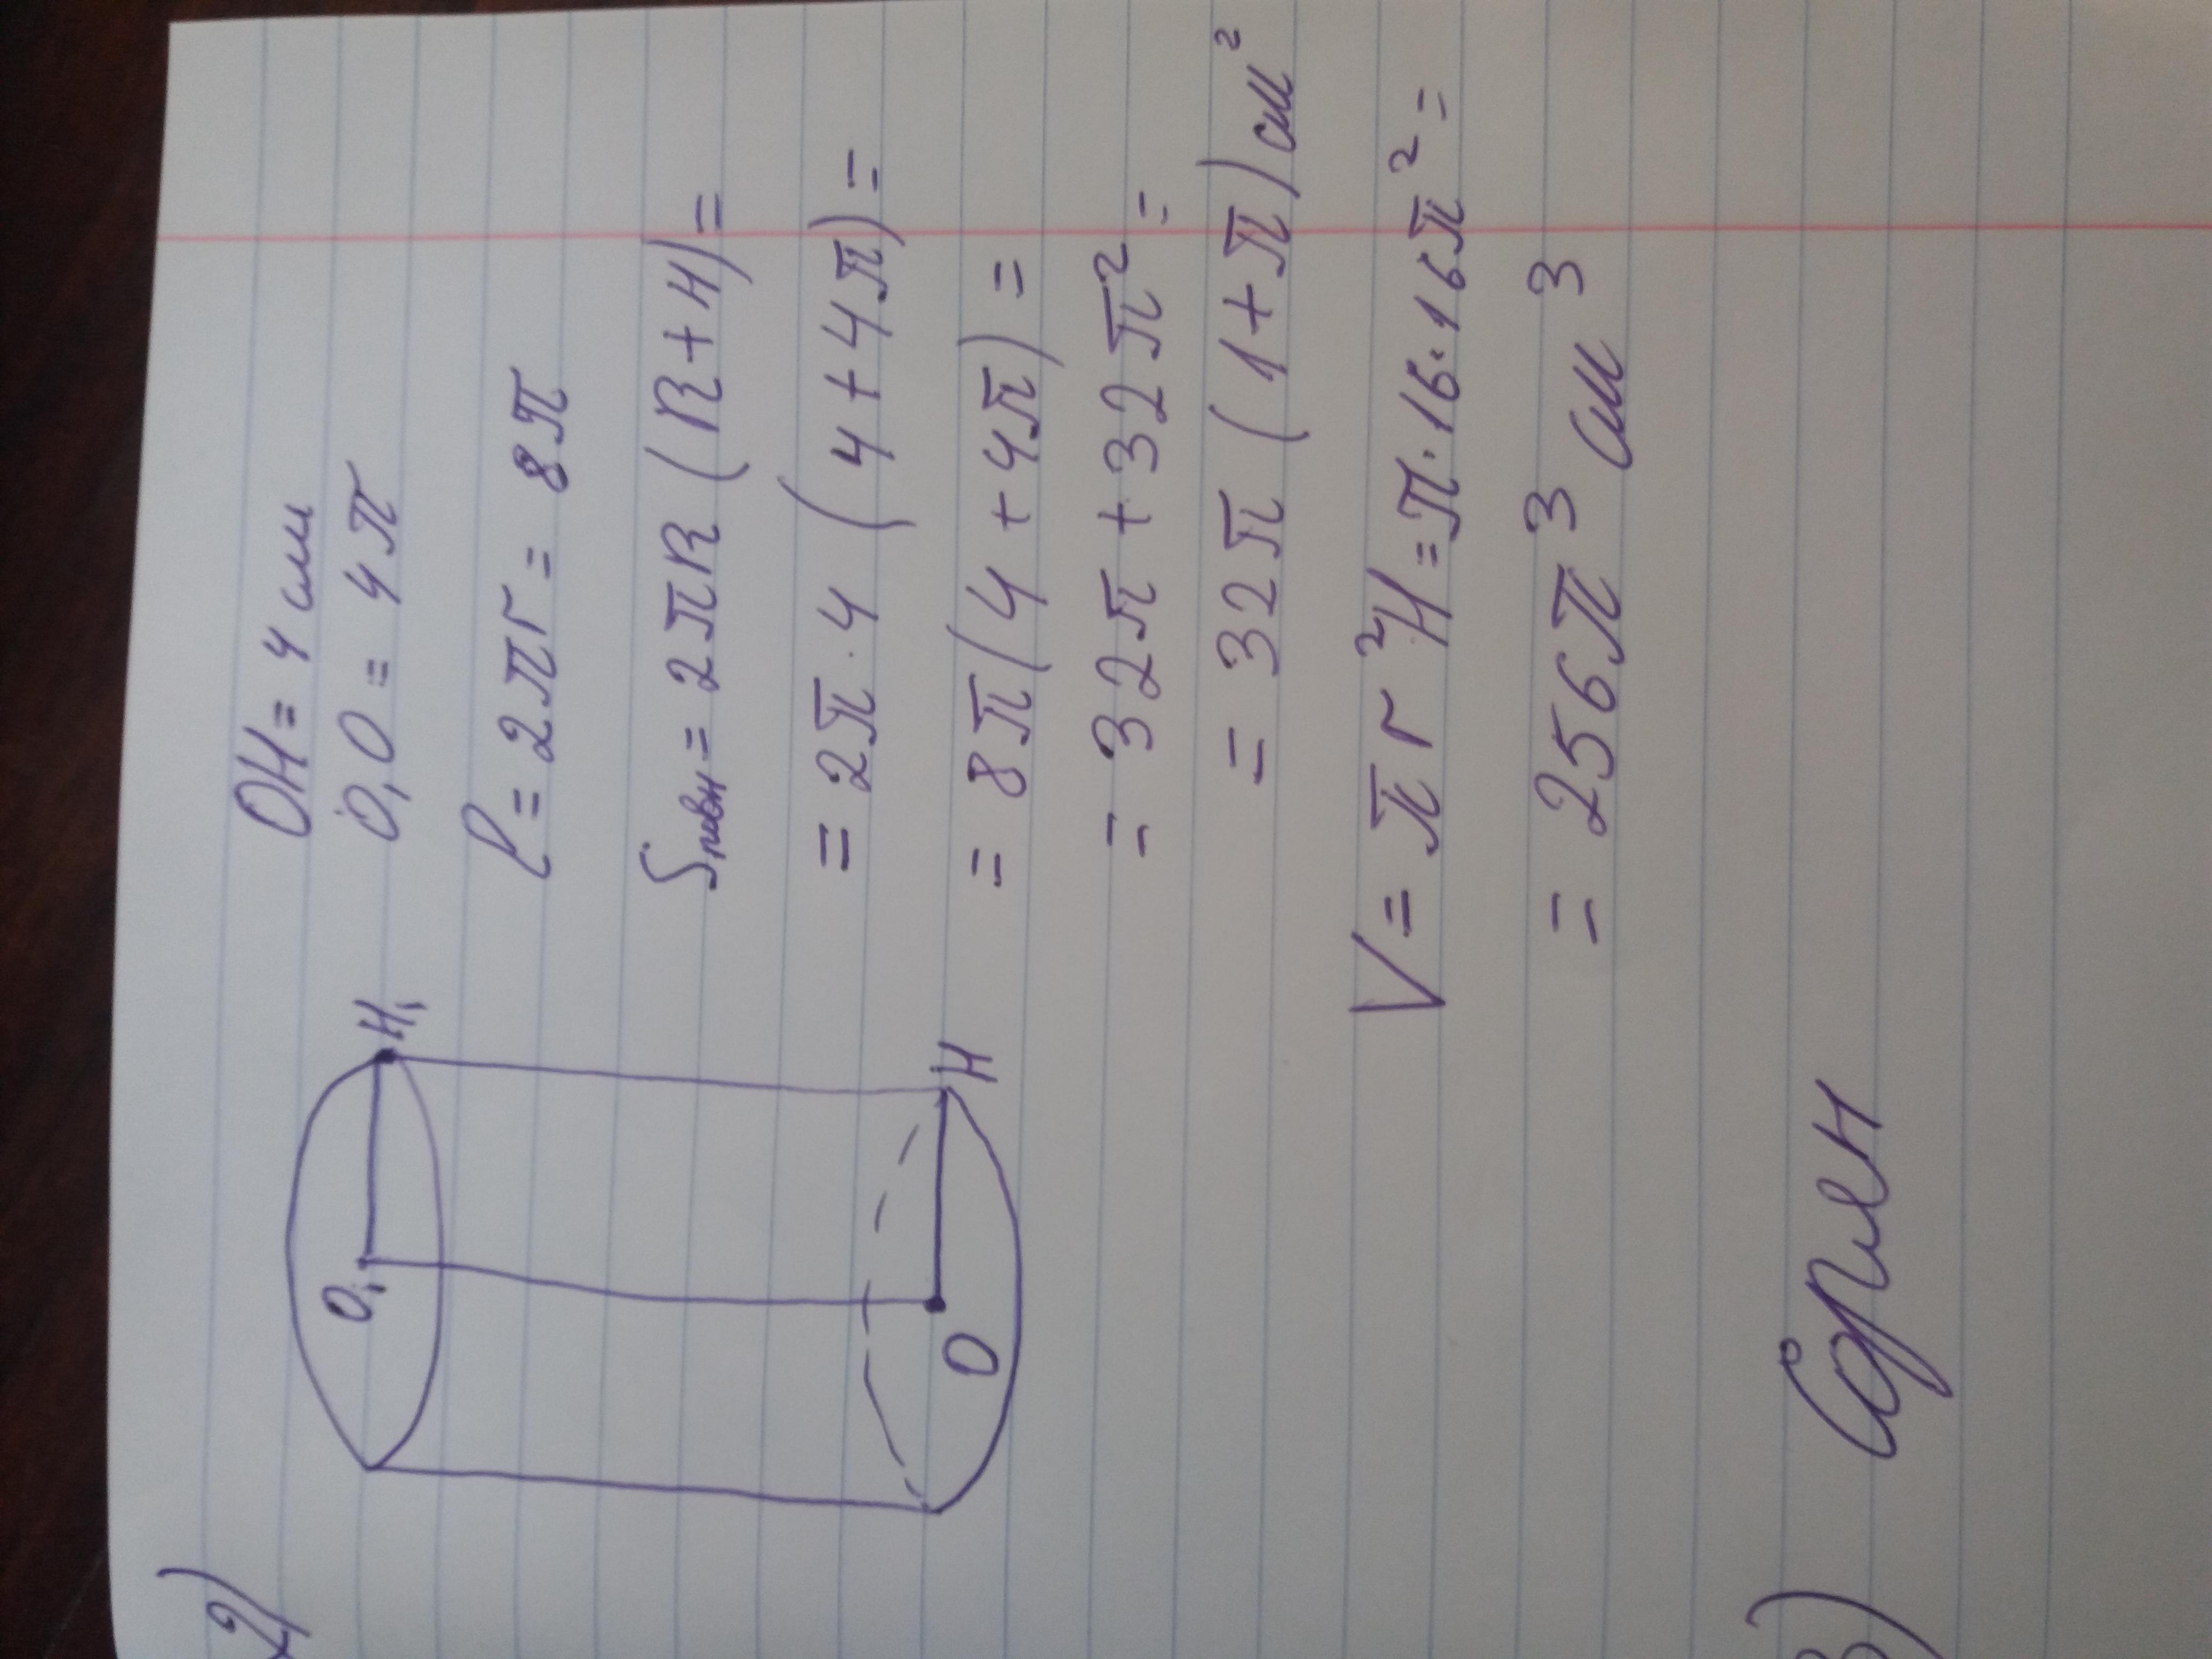 2)
O₁
H₁
O
H
OH = 4 см
O₁O = 4π
l = 2πr = 8π
Sповн = 2πR (R + H) =
= 2π · 4 (4 + 4π) =
= 8π (4 + 4π) =
= 32π + 32π² =
= 32π (1 + π) см²
V = πr²H = π · 16 · 16π² =
= 256π³ см³
3)